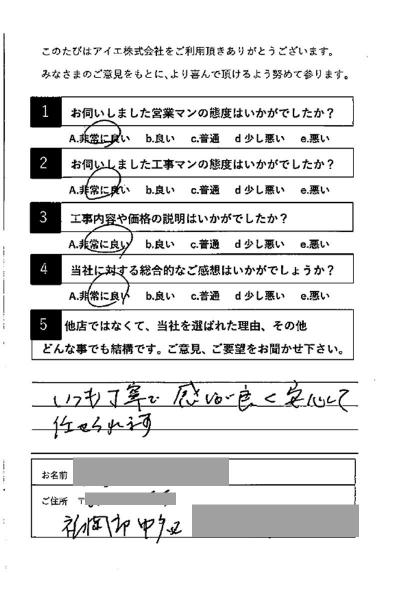 このたびはアイエ株式会社をご利用頂きありがとうございます。
みなさまのご意見をもとに、より喜んで頂けるよう努めて参ります。
1 お伺いしました営業マンの態度はいかがでしたか？
A.非常に良い b.良い c.普通 d 少し悪い e.悪い
2 お伺いしました工事マンの態度はいかがでしたか？
A.非常に良い b.良い c.普通 d 少し悪い e.悪い
3 工事内容や価格の説明はいかがでしたか？
A.非常に良い b.良い c.普通 d 少し悪い e.悪い
4 当社に対する総合的なご感想はいかがでしょうか？
A.非常に良い b.良い c.普通 d 少し悪い e.悪い
5 他店ではなくて、当社を選ばれた理由、その他
どんな事でも結構です。ご意見、ご要望をお聞かせ下さい。
いつも丁寧で 感じが良く 安心して
任せられます
お名前
ご住所 〒
福岡市 中央区